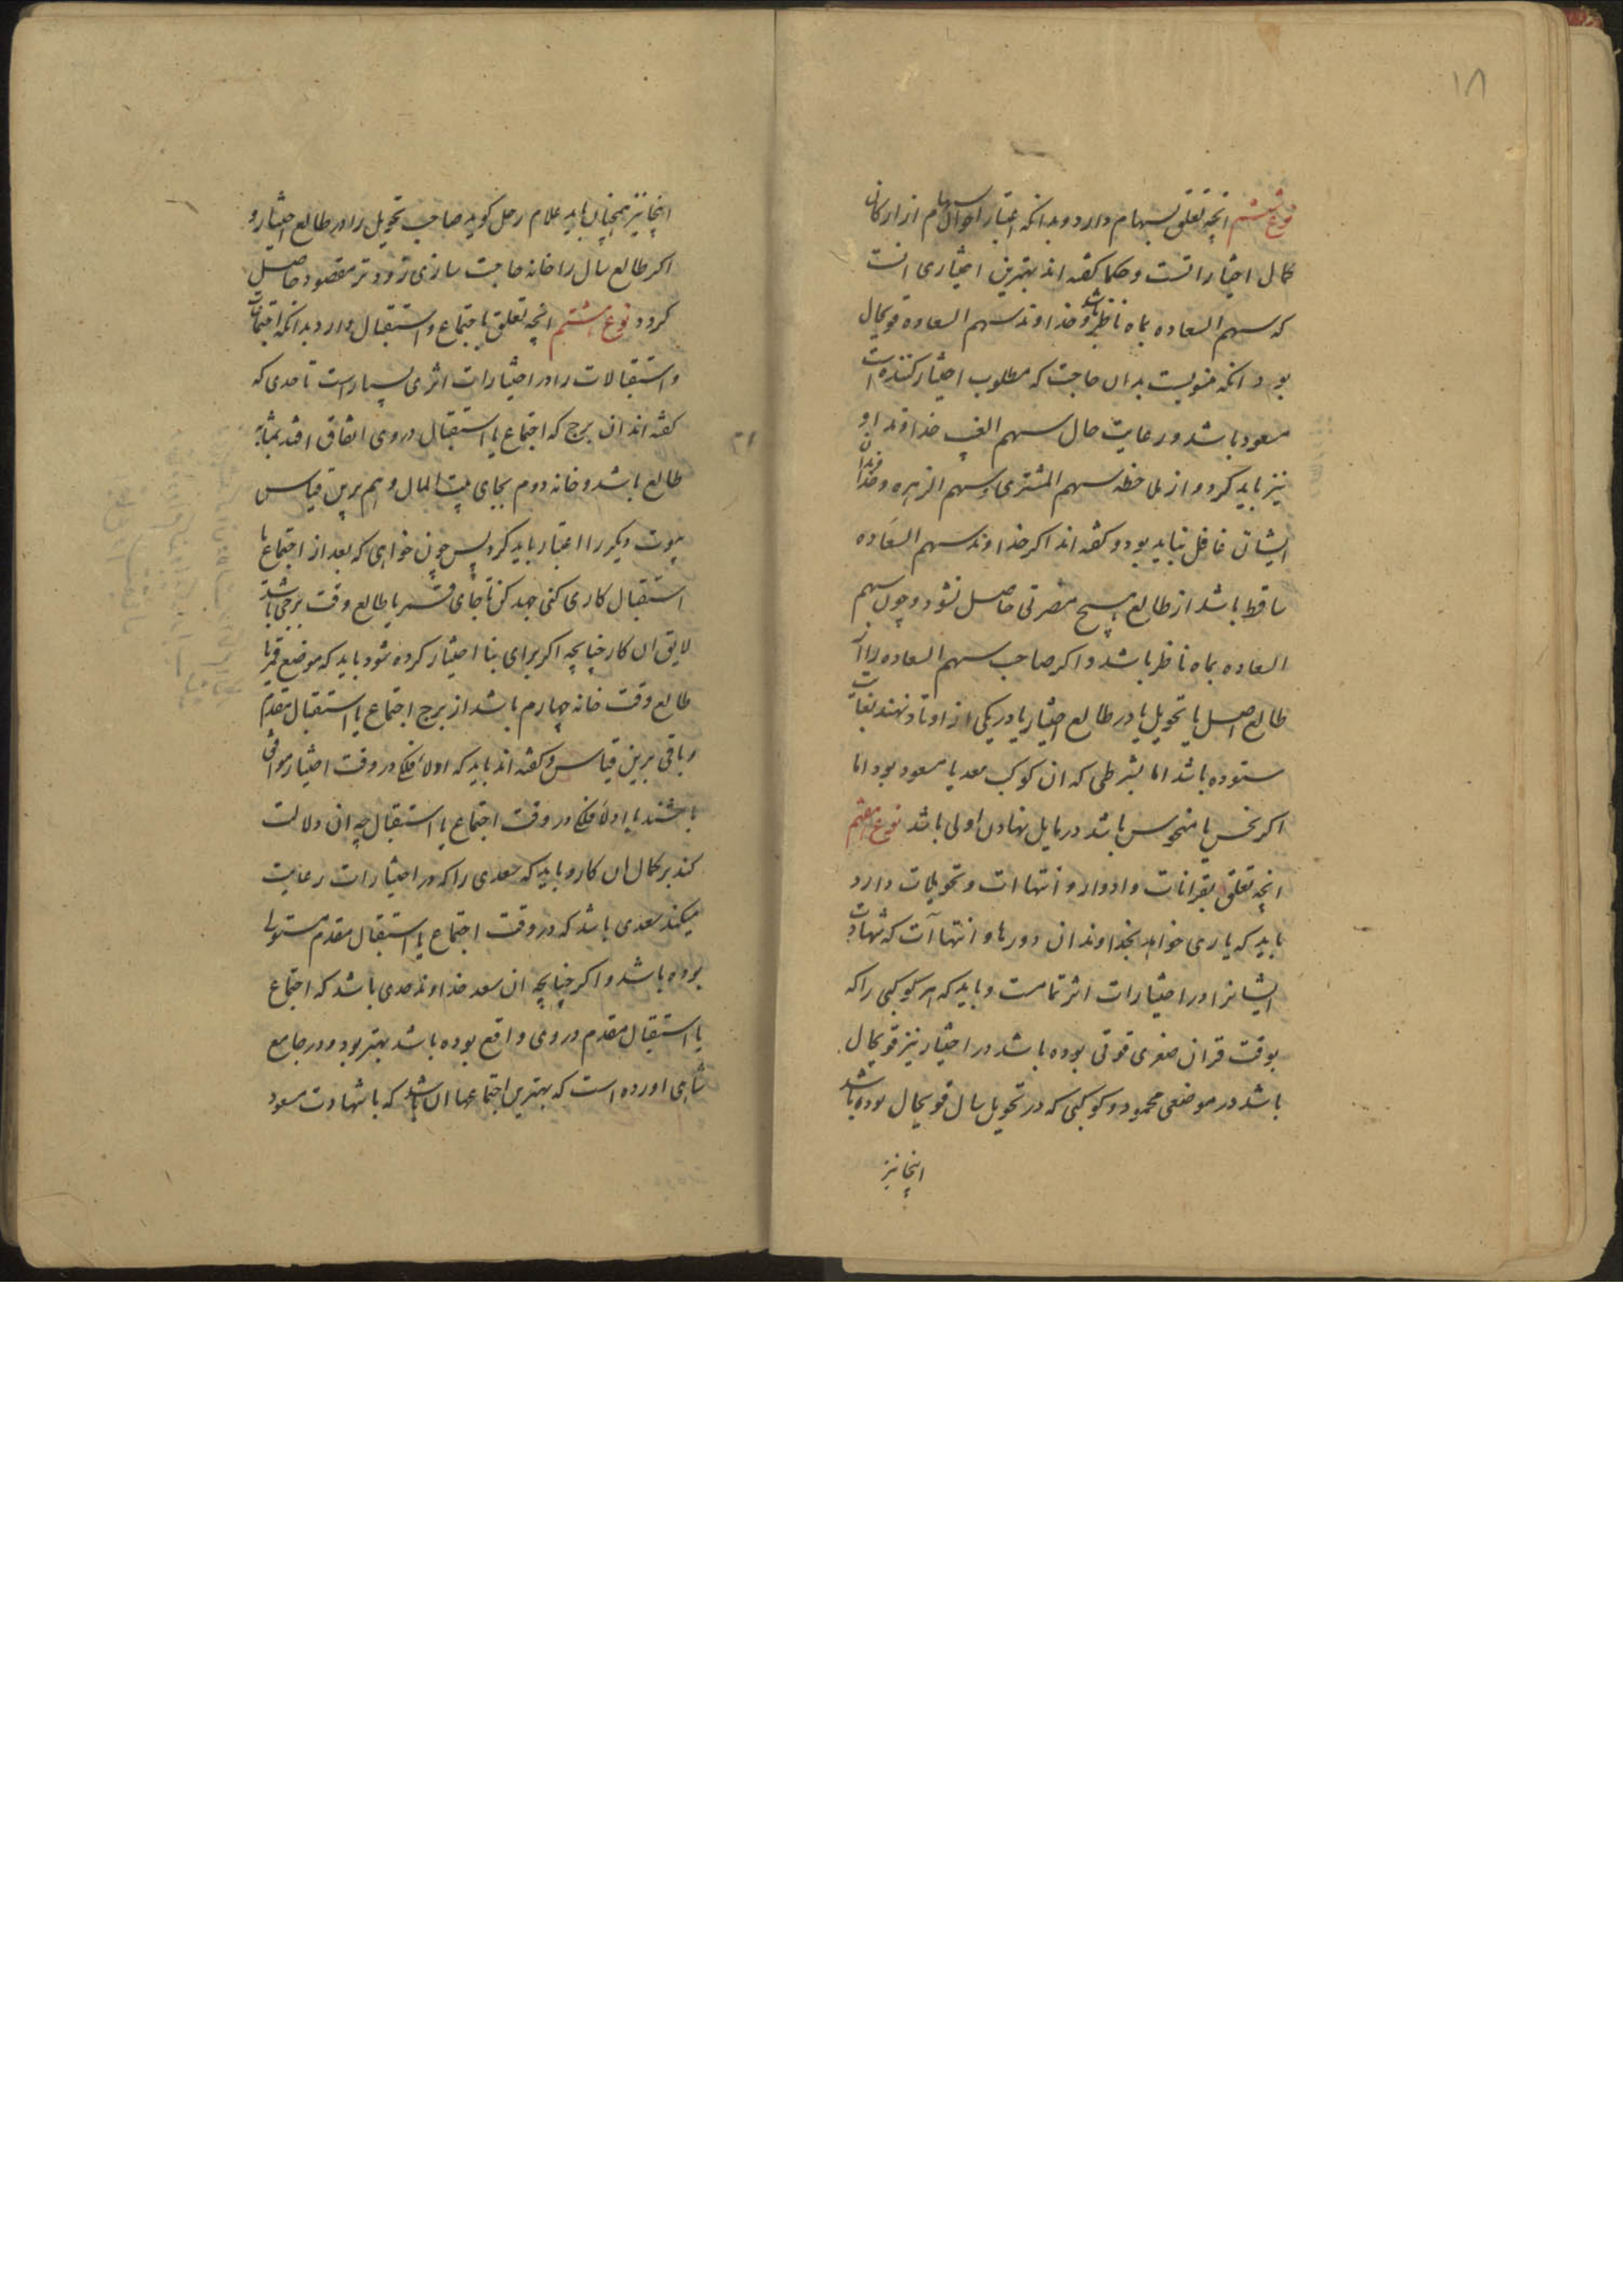 ۱۸
نوع ششم انچه تعلق بسهام دارد و بدانکه اعتبار احوال سهام از ارکان
کمال اختیاراتست و حکما کفته اند بهترین اختیاری انست
که سهم السعاده بماه ناظر باشد و خداوند سهم السعاده قویحال
بود انکه منسوبست بدان حاجت که مطلوب اختیار کننده است
مسعود باشد و رعایت حال سهم الغیب و خداوند او
نیز باید کرد و از ملاحظه سهم المشتری و سهم الزهره و خداوندان
ایشان غافل نباید بود و کفته اند اکر خداوند سهم السعاده
ساقط باشد از طالع هیچ مضرتی حاصل نشود و چون سهم
السعاده بماه ناظر باشد و اکر صاحب سهم السعاده را در
طالع اصل یا تحویل یا در طالع اختیار یا در یکی از اوتاد نهند بغایت
ستوده باشد اما بشرطی که ان کوکب سعد یا مسعود بود اما
اکر نحس یا منحوس باشد در مایل نهادن اولی باشد نوع هفتم
انچه تعلق بقرانات و ادوار و انتهاات و تحویلات دارد
باید که یاری خواهد بخداوندان دورها و انتهاآت که شهادت
ایشانرا در اختیارات اثر تمامست و باید که هر کوکبی را که
بوقت قران صغری قوتی بوده باشد در اختیار نیز قویحال
باشد در موضعی محمود و کوکبی که در تحویل سال قویحال بوده باشد
اینجا نیز
اینجا نیز همچنان باید علام زحل کوید صاحب تحویل را در طالع اختیار و
اکر طالع سال را خانه حاجت سازی زودتر مقصود حاصل
کردد نوع هشتم انچه تعلق باجتماع و استقبال دارد بدانکه اجتماعات
و استقبالات را در اختیارات اثری بسیار است تا حدی که
کفته اند ان برج که اجتماع یا استقبال در وی اتفاق افتد بمثابه
طالع باشد و خانه دوم بجای بیت المال و هم برین قیاس
بیوت دیکر را اعتبار باید کرد پس چون خواهی که بعد از اجتماع یا
استقبال کاری کنی جهد کن تا جای قمر یا طالع وقت برجی باشد
لایق ان کار چنانچه اکر برای بنا اختیار کرده شود باید که موضع قمر یا
طالع وقت خانه چهارم باشد از برج اجتماع یا استقبال مقدم
و باقی برین قیاس و کفته اند باید که اولاً فلک در وقت اختیار موافق
باشند با اولاً فلک در وقت اجتماع یا استقبال چه ان دلالت
کند بر کمال ان کار و باید که سعدی را که در اختیارات رعایت
میکند سعدی باشد که در وقت اجتماع یا استقبال مقدم مستولی
بوده باشد و اکر چنانچه ان سعد خداوند حدی باشد که اجتماع
یا استقبال مقدم در وی واقع بوده باشد بهتر بود و در جامع
شاهی اورده است که بهترین اجتماعها ان باشد که با شهادت مسعود